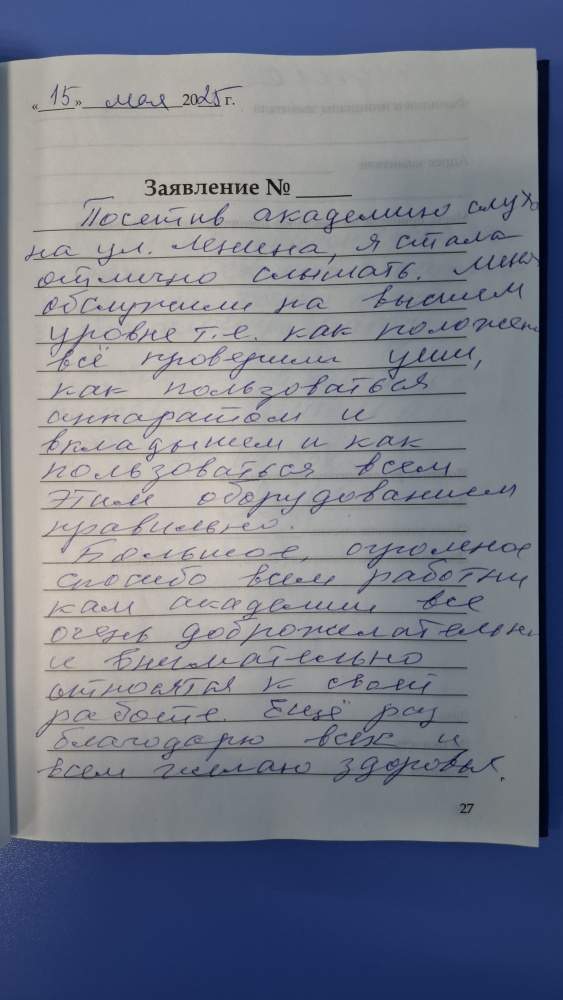 «15» мая 2025 г.
Заявление № ____
Посетив академию слуха
на ул. Ленина, я стала
отлично слышать. Меня
обслужили на высшем
уровне т.е. как положено
всё проверили уши,
как пользоваться
аппаратом и
вкладышем и как
пользоваться всем
этим оборудованием
правильно.
Большое, огромное
спасибо всем работни
кам академии все
очень доброжелательно
и внимательно
относятся к своей
работе. Ещё раз
благодарю всех и
всем желаю здоровья.
27